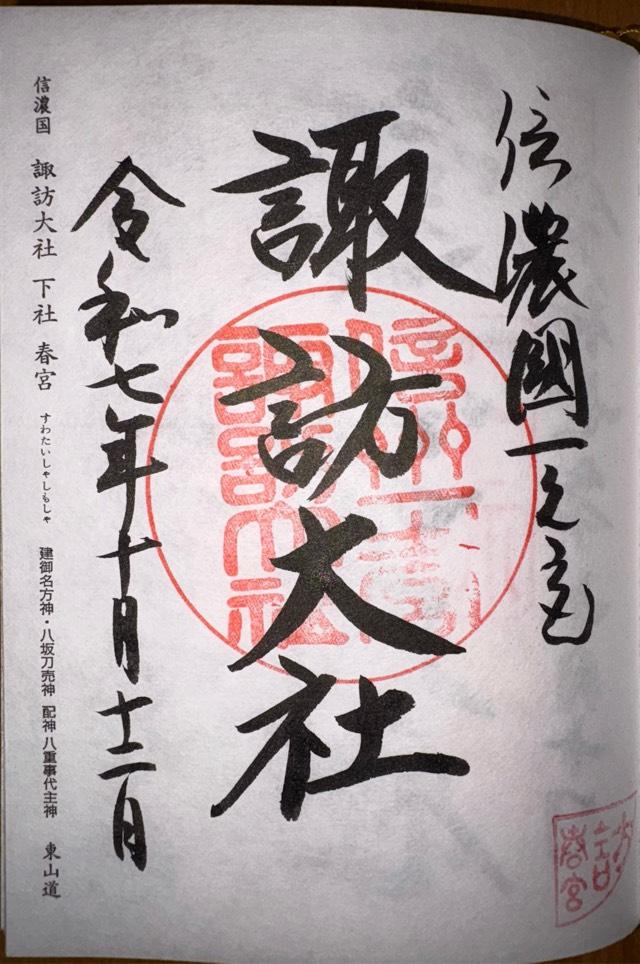 信濃國一之宮
諏訪大社
令和七年十月十二日
信濃国 諏訪大社 下社 春宮 すわたいしゃしもしゃ 建御名方神・八坂刀売神 配神 八重事代主神 東山道